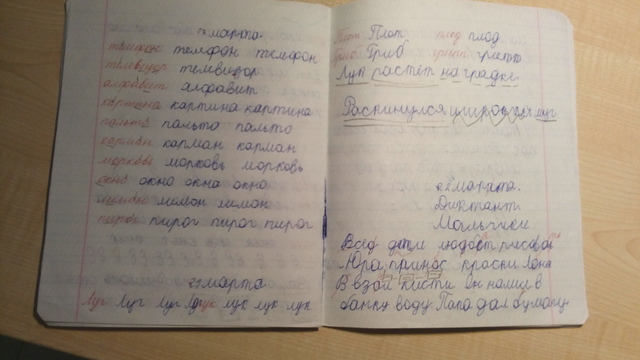 марта.
телефон телефон телефон
телевизор телевизор
алфавит алфавит
картина картина картина
пальто пальто пальто
карман карман карман
морковь морковь морковь
окно окно окна окно
лимон лимон
пирог пирог пирог пирог
марта
Луг Луг Луг Лук лук лук лук
Плот Плот плод плод
Гриб Гриб грипп грипп
Лук растёт на грядке
Раскинулся широкий луг
марта.
Диктант.
Все дети любят рисоват
Юра принёс краски Лена
В взял кисти Он налил в
банку воду Папа дал бумагу